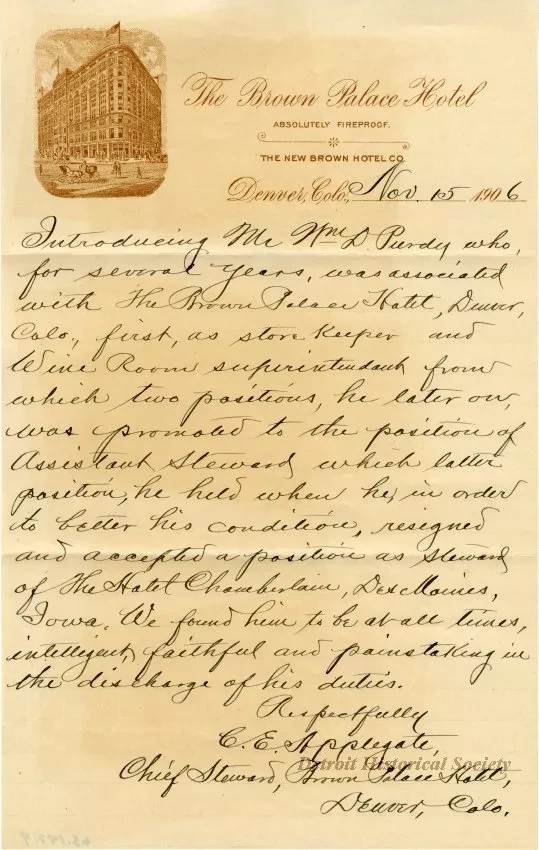 The Brown Palace Hotel
ABSOLUTELY FIREPROOF.
THE NEW BROWN HOTEL CO.
Denver, Colo., Nov. 15 1906
Introducing Mr Wm D. Purdy who,
for several years, was associated
with The Brown Palace Hotel, Denver,
Colo., first, as store Keeper and
Wine Room superintendant from
which two positions, he later on,
was promoted to the position of
Assistant Steward which latter
position, he held when he, in order
to better his condition, resigned
and accepted a position as steward
of The Hotel Chamberlain, Des Moines,
Iowa. We found him to be at all times,
intelligent, faithful and painstaking in
the discharge of his duties.
Respectfully
C. E. Applegate,
Chief Steward, Brown Palace Hotel,
Denver, Colo.
Detroit Historical Society